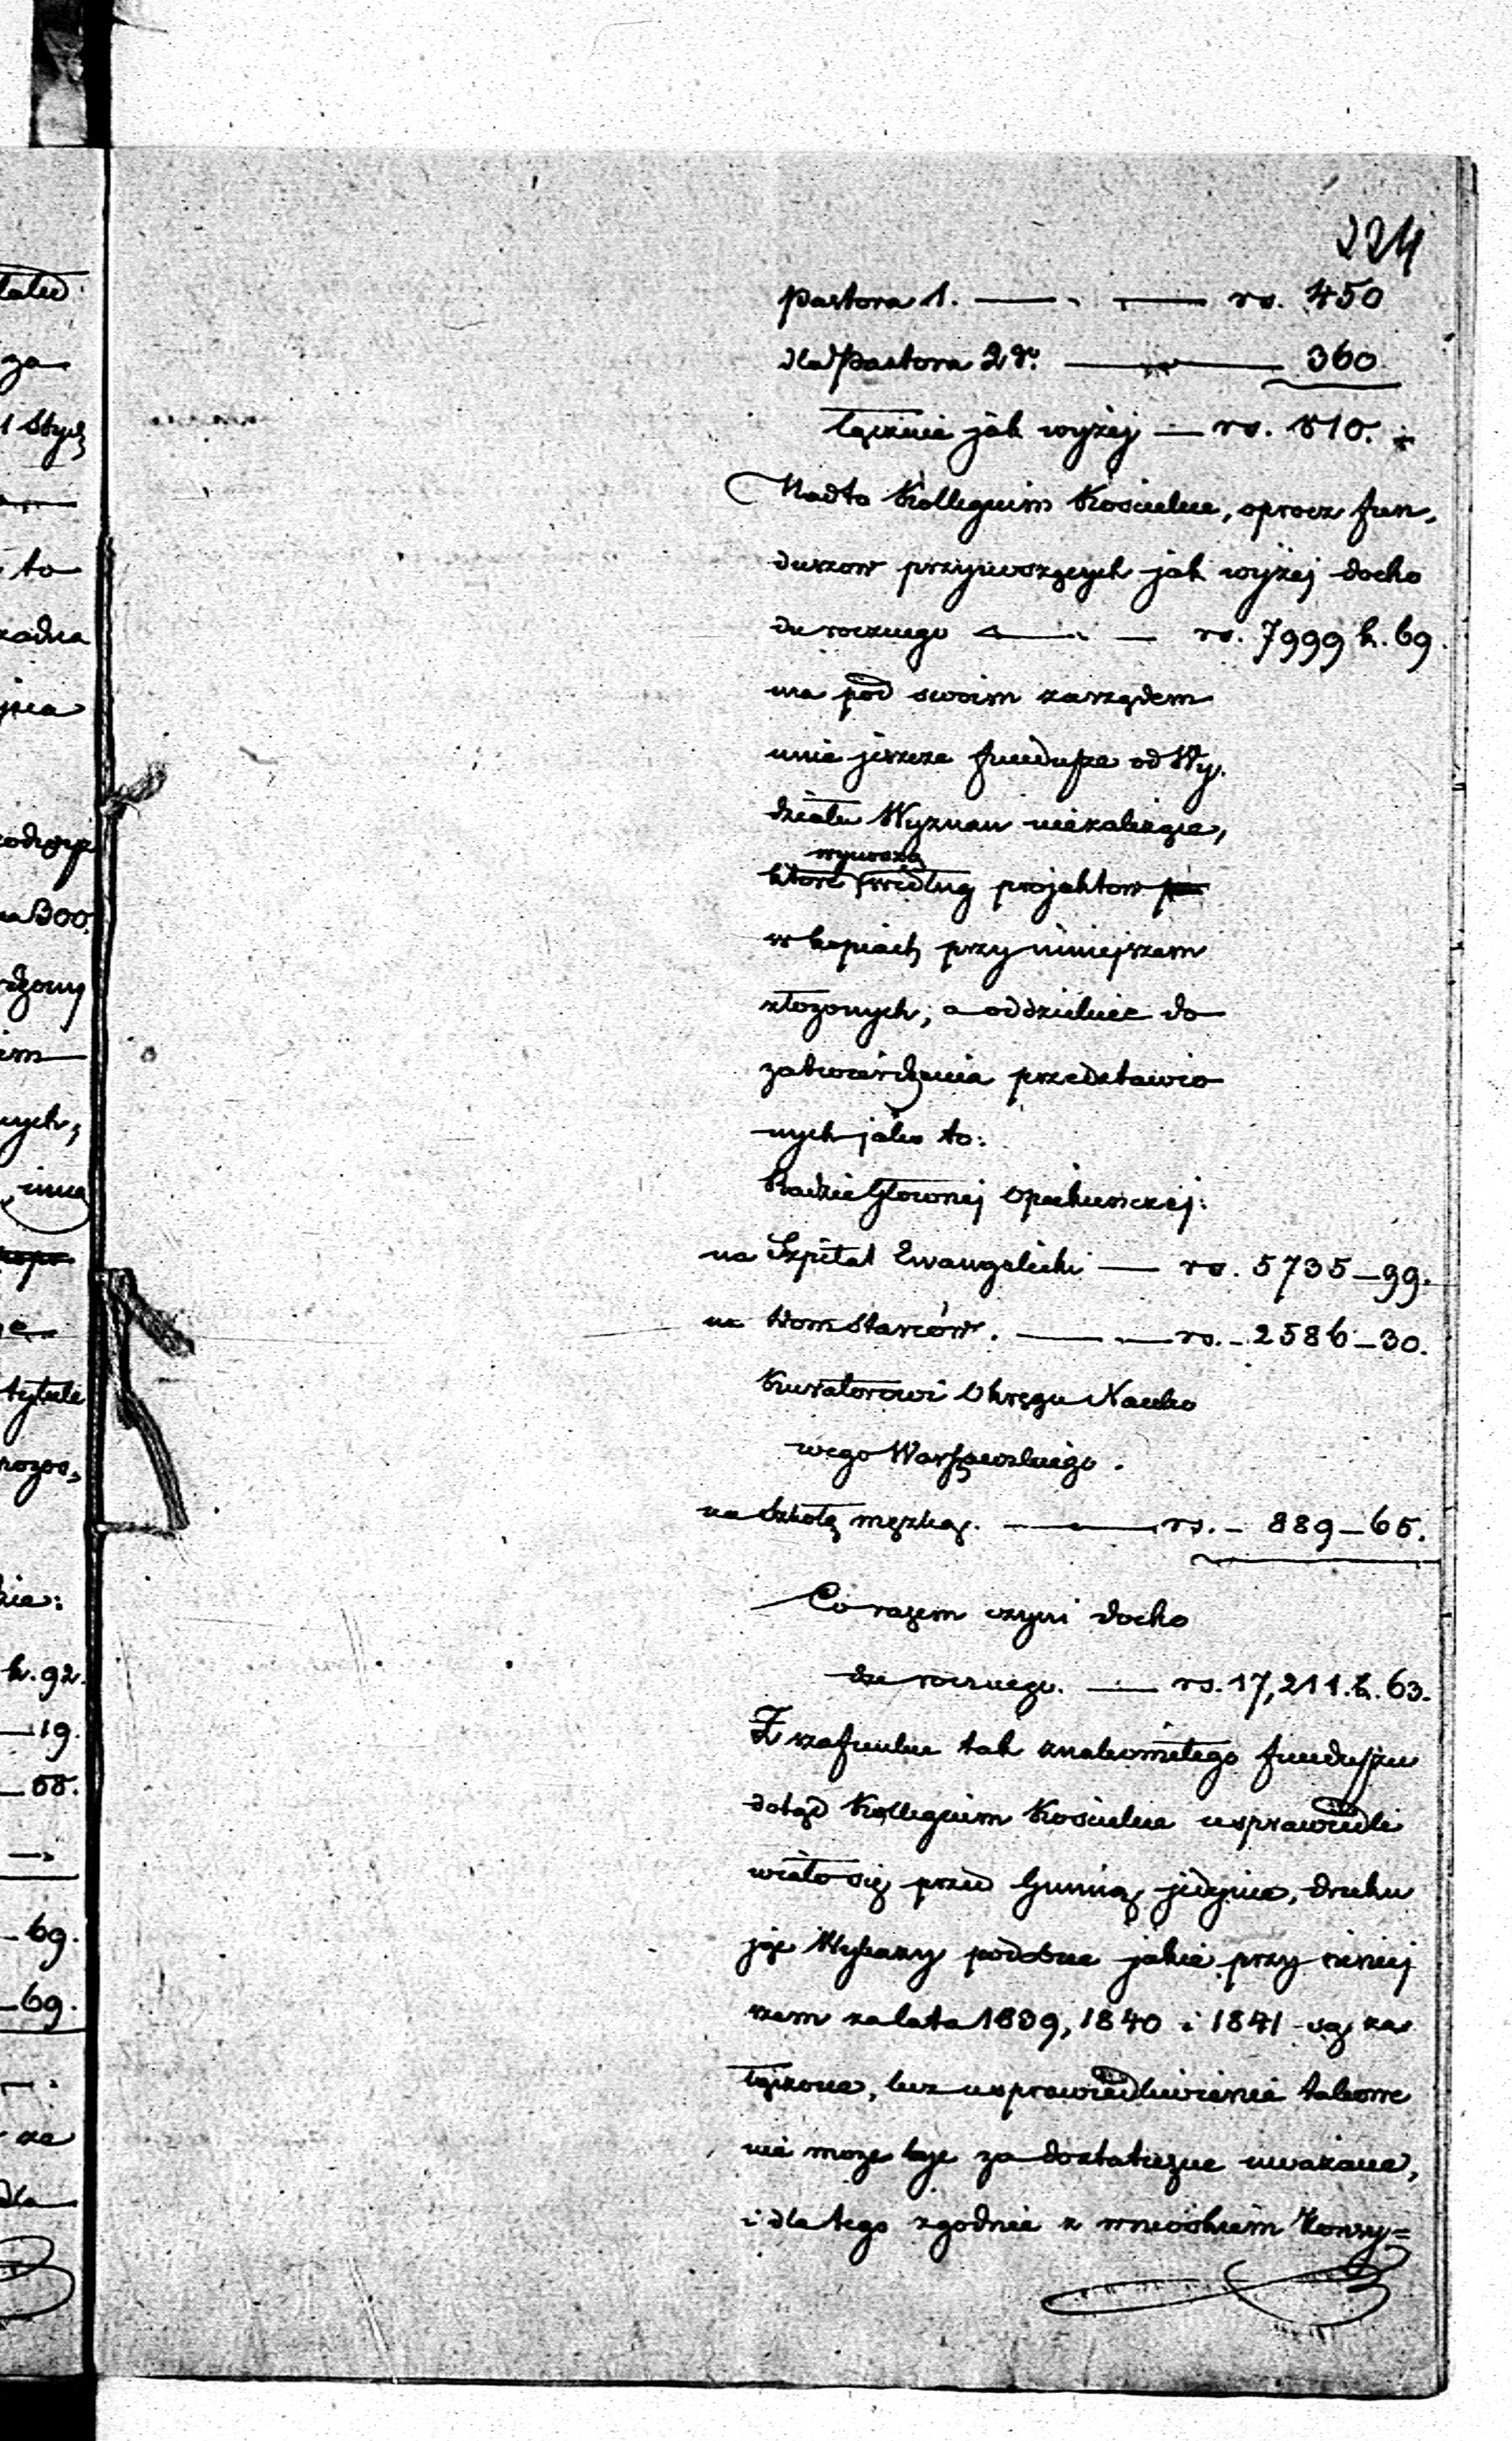 224
pastora 1. — rs. 450
dla Pastora 2go. — 360
łącznie jak wyżej — rs. 810.
Nadto Kollegium Kościelne, oprocz fun,
duszow przynoszących jak wyżej docho
du rocznego — rs. 7999 k. 69.
ma pod swoim zarządem
inne jeszcze fundusze od Wy,
działu Wyznan niezależące,
wynoszą
które według projektow
w kopiach przy niniejszem
złożonych, a oddzielnie do
zatwierdzenia przedstawio
nych jako to:
Radzie Głownej Opiekunczej:
na Szpital Ewangelicki — rs. 5735—99.
na Dom Starców. — rs. — 2586—30.
Kuratorowi Okręgu Nauko
wego Warszawskiego.
na Szkołę męzką. — rs. — 889—65.
Co razem czyni docho
du rocznego. — rs. 17,211. k. 63.
Z szafunku tak znakomitego funduszu
dotąd Kollegium Kościelne usprawiedli
wiało się przed Gminą jedynie, druku
jąc Wykazy podobne jakie przy niniej
szem za lata 1839, 1840 i 1841 są za
łączone, lecz usprawiedliwienie takowe
nie może być za dostateczne uważane,
i dla tego zgodnie z wnioskiem Konsy=
tału
za
1 Stycz
to
żadna
300.
tytule
k. 92.
—19.
—
—69.
—69.
za
dla